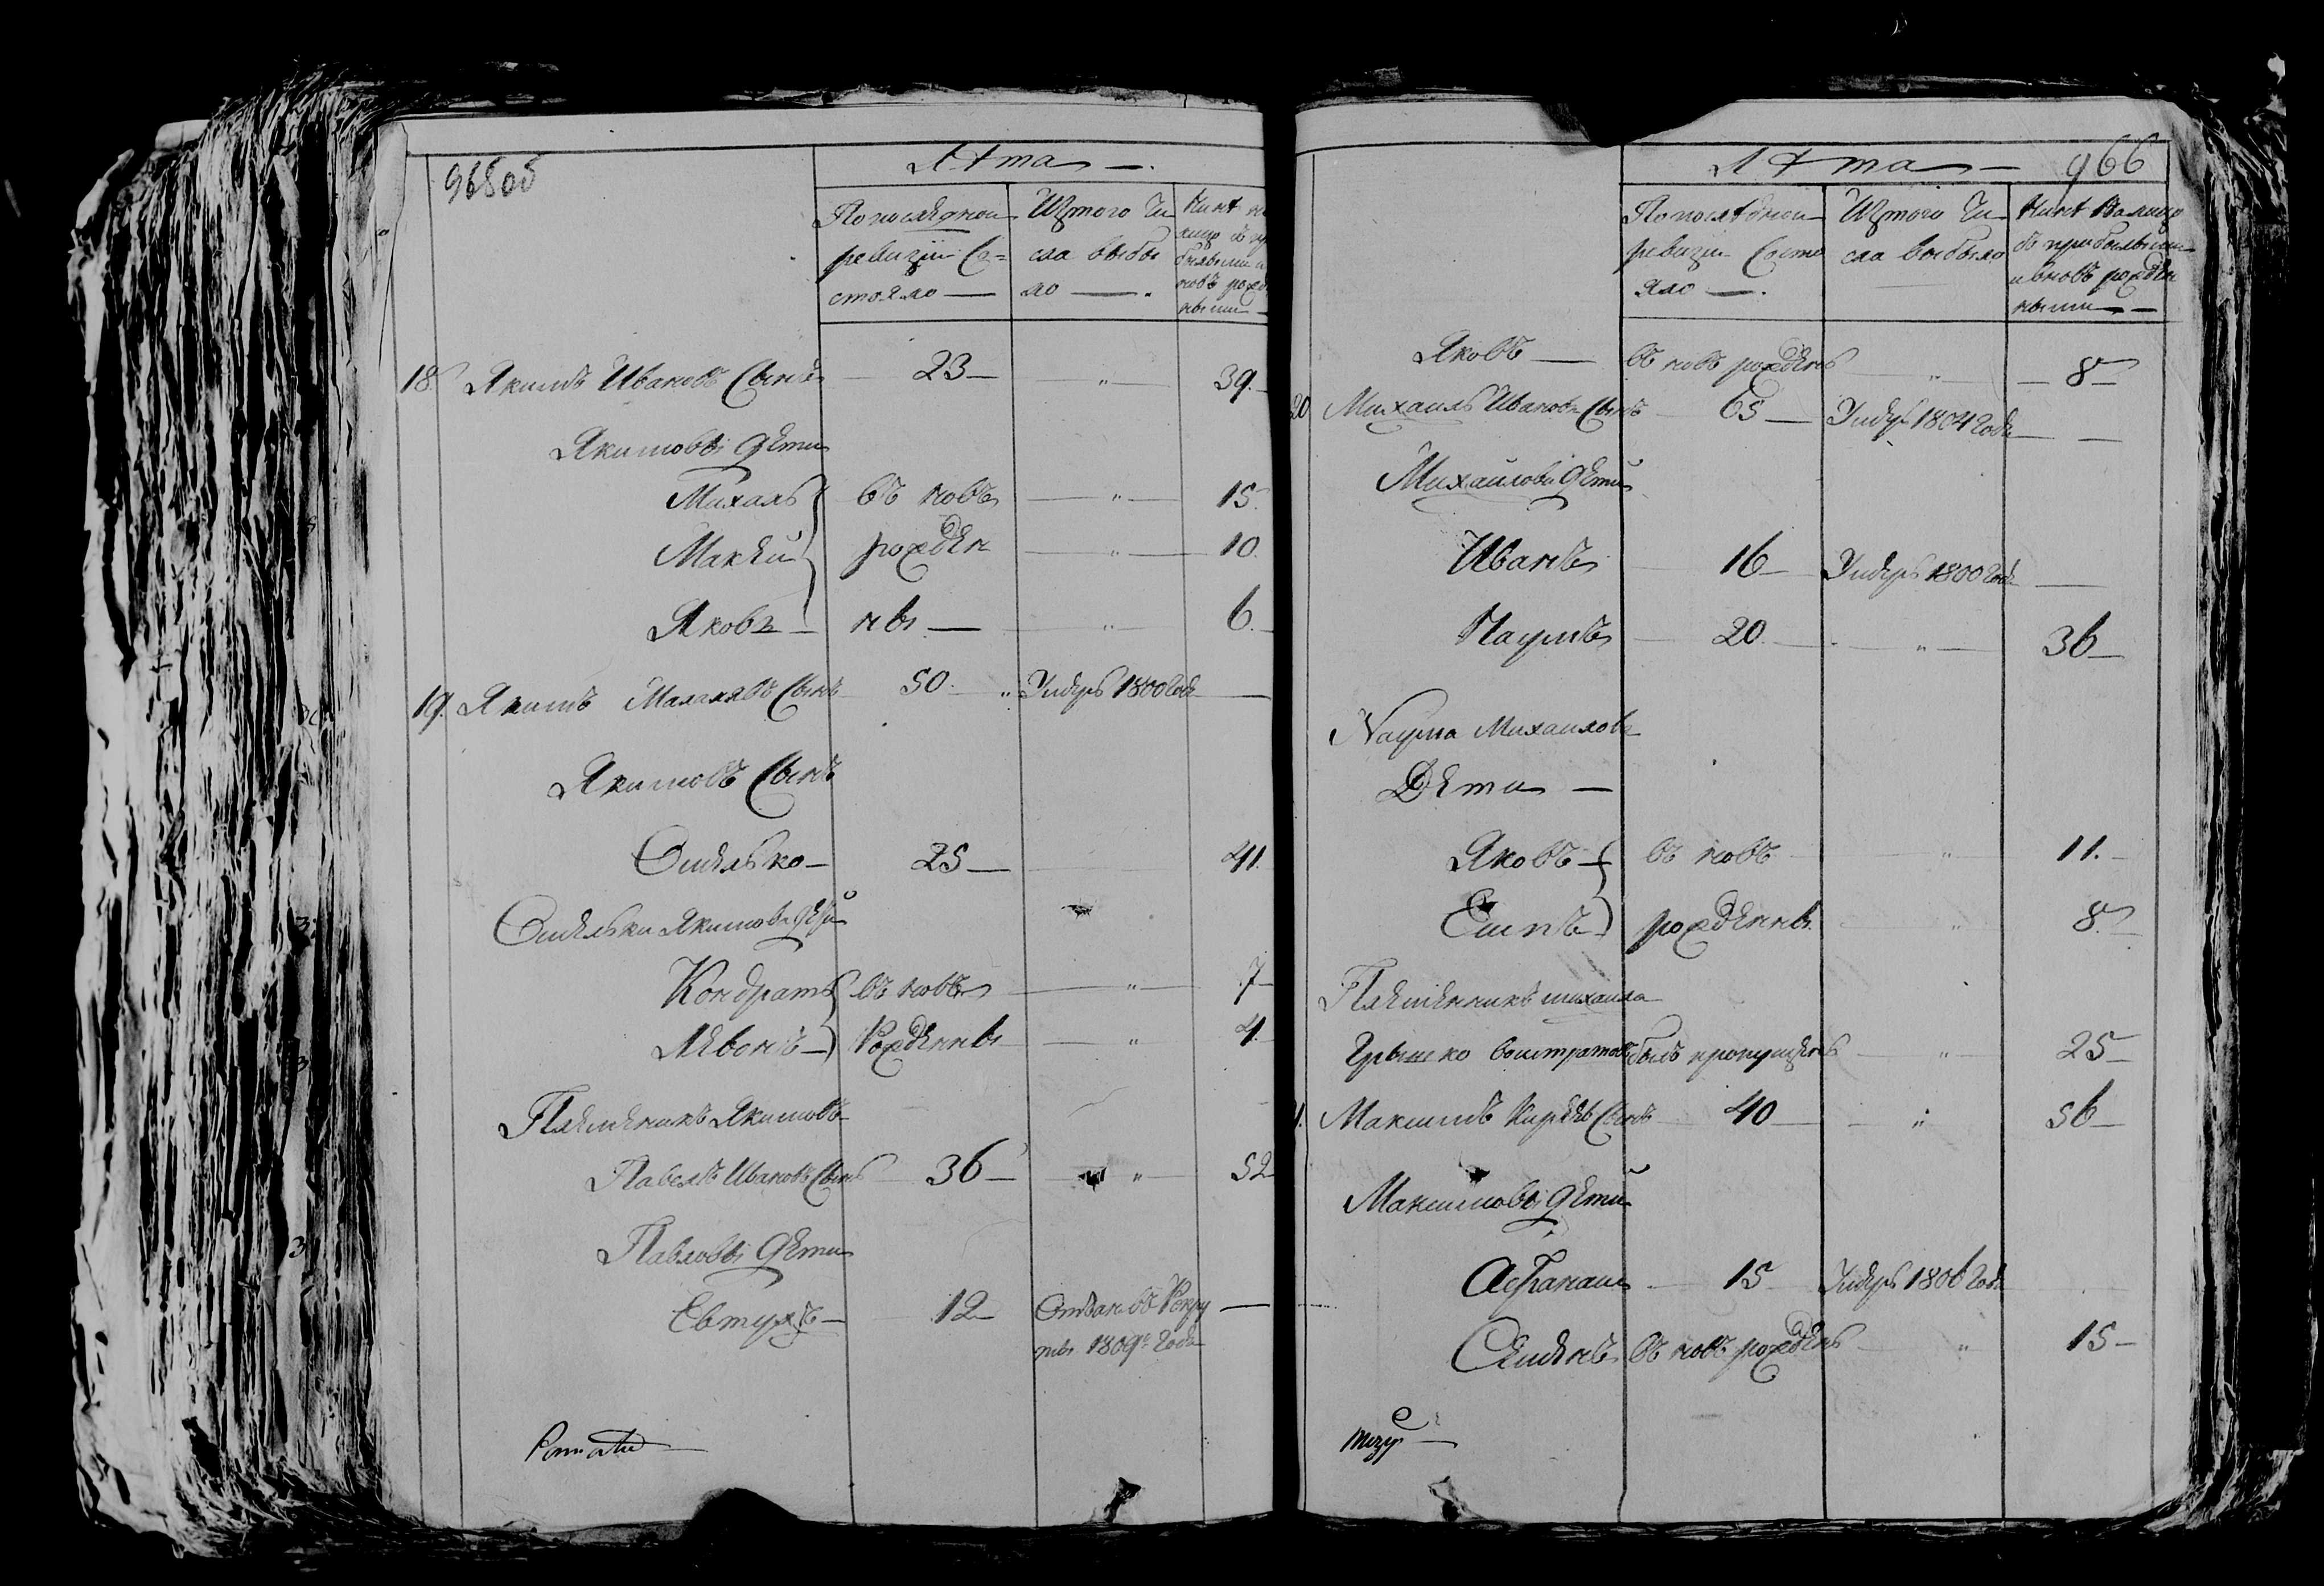 965об
Лѣта
По послѣдной
ревизіи Со=
стояло
Изтого Чи
сла выбы
ло
Нынѣ на
лицо съ пр
былыми и
новъ рожд
ными
18. Якимъ Ивановъ Сынъ 23 „ 39.
Якимовы дѣти
Михаль въ новъ „ 15.
Макѣй рожден „ 10.
Яковъ ны „ 6.
19. Якимъ Малахѣвъ Сынъ 50. „ Умеръ 1800 года
Якимовъ Сынъ
Омелько 25 41.
Омельки Якимова дети
Кондратъ въ новъ „ 7
Левонъ Рожденны „ 4.
Племеникъ Якимовъ
Павелъ Ивановъ Сынъ 36 „ 52
Павловы дѣти
Евтухъ 12 Отдан въ Рекру
ты 1809 года
966
Лѣта
По послѣдной
ревизіи Состо
яло
Изтого Чи
сла выбыло
Нынѣ Налицо
съ прибылыми
и вновъ рожден
ными
Яковъ въ новъ рожденъ „ 8
20 Михаилъ Ивановъ Сынъ 65 Умеръ 1804 года
Михайловы дѣти
Иванъ 16 Умеръ 1800 года
Наумъ 20. „ 36
Наума Михаилова
Дети
Яковъ въ новъ „ 11.
Есипъ рожденны „ 8
Племенникъ михаила
Грышко был пропущенъ „ 25
1. Максимъ Кирѣевъ Сынъ 40 „ 56
Максимовы дѣти
Афанасъ 15 Умеръ 1806 года
Семенъ въ новъ рожденъ „ 15